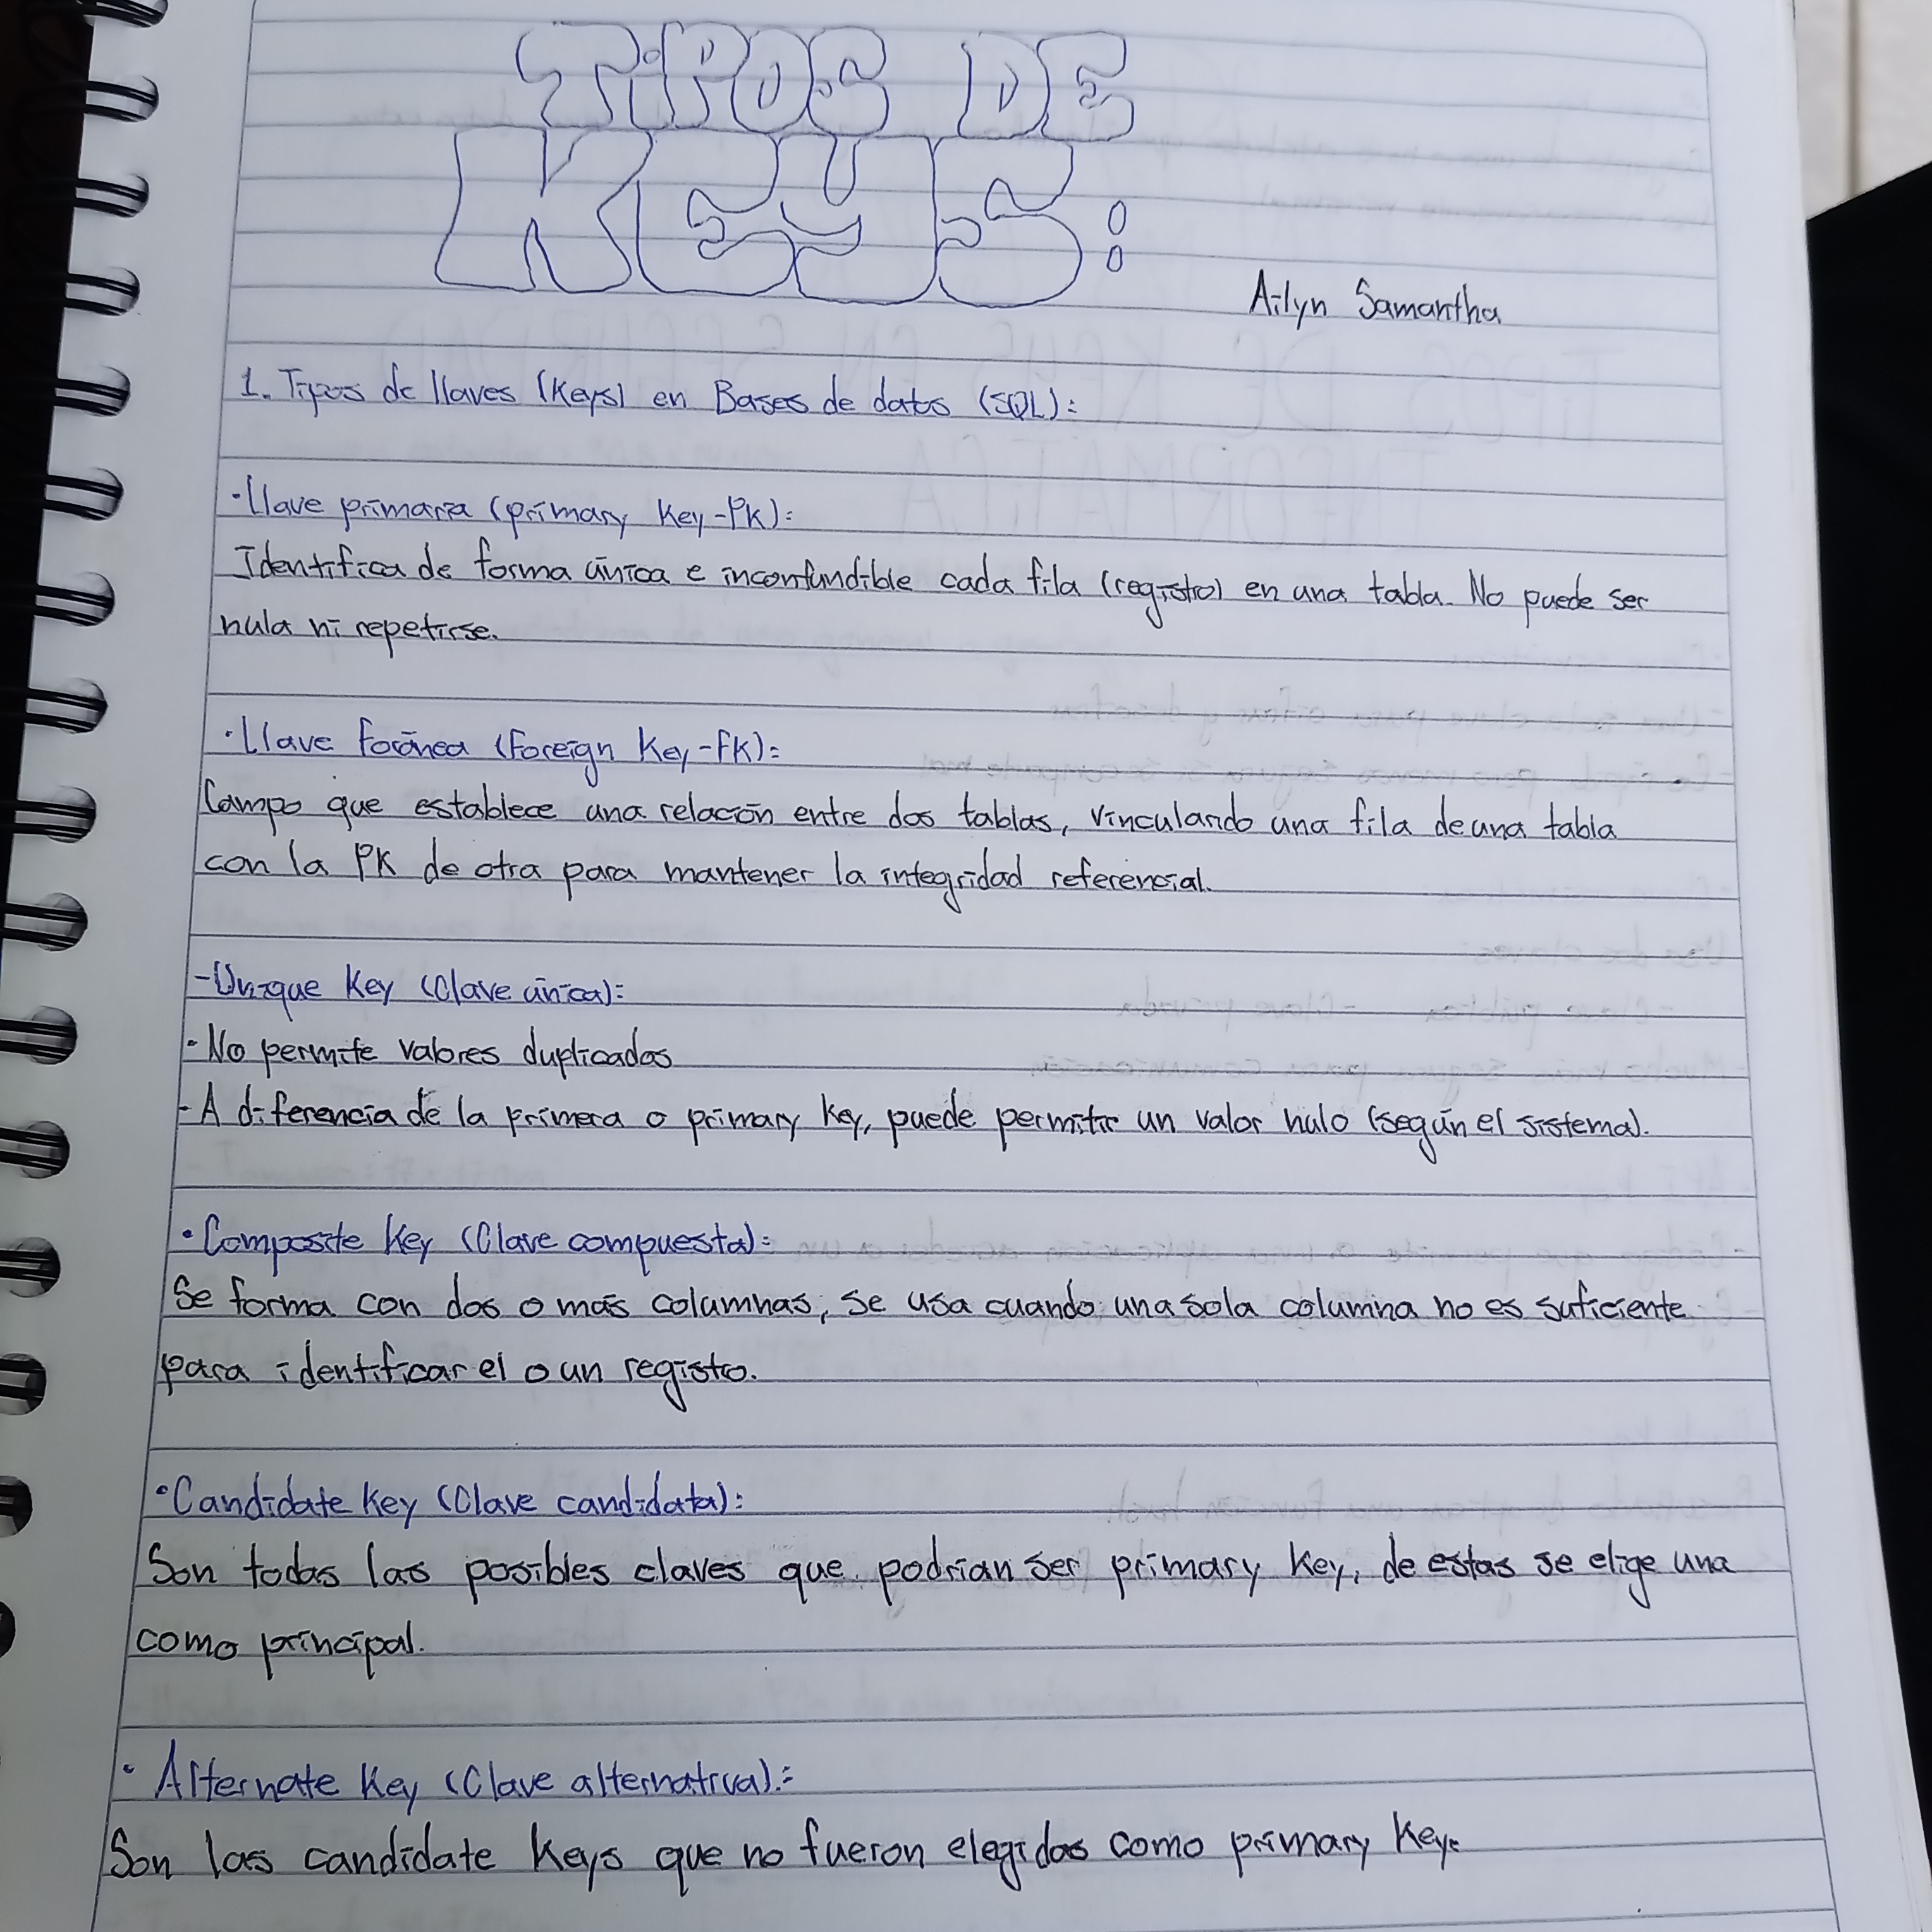 TiPOS DE
KEYS:
Ailyn Samantha
1. Tipos de llaves (Keys) en Bases de datos (SQL):
·Llave primaria (primary Key-PK):
Identifica de forma única e inconfundible cada fila (registro) en una tabla. No puede ser
nula ni repetirse.
·Llave Foránea (Foreign Key-FK):
Campo que establece una relación entre dos tablas, vinculando una fila de una tabla
con la PK de otra para mantener la integridad referencial.
-Unique Key (Clave única):
·No permite valores duplicados
-A diferencia de la primera o primary key, puede permitir un valor nulo (según el sistema).
·Composite Key (Clave compuesta):
Se forma con dos o más columnas, se usa cuando una sola columna no es suficiente
para identificar el o un registro.
·Candidate Key (Clave candidata):
Son todas las posibles claves que podrían ser primary Key, de estas se elige una
como principal.
· Alternate Key (Clave alternativa):
Son las candidate Keys que no fueron elegidas como primary Key.